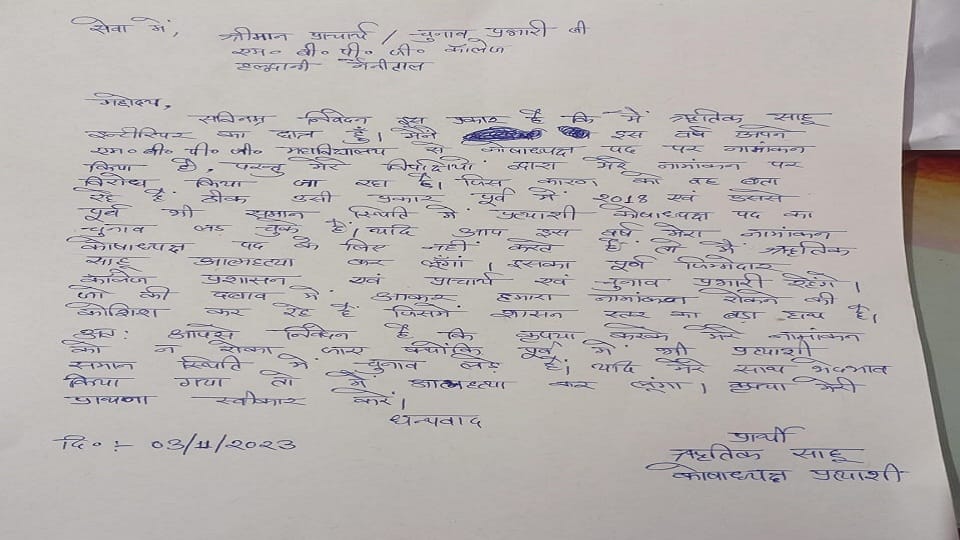 सेवा में,
श्रीमान प्राचार्य / चुनाव प्रभारी जी
एम० बी० पी० जी० कॉलेज
हल्द्वानी नैनीताल
महोदय,
सविनय निवेदन इस प्रकार है कि मैं ऋतिक साहू
का छात्र हूँ। मैंने इस वर्ष अपने
एम० बी० पी० जी० महाविद्यालय से कोषाध्यक्ष पद पर नामांकन
किया है, परन्तु मेरे विपक्षियों द्वारा मेरे नामांकन पर
विरोध किया जा रहा है। जिस कारण को वह बता
रहे है ठीक उसी प्रकार पूर्व में 2018 एवं उससे
पूर्व भी समान स्थिति में प्रत्याशी कोषाध्यक्ष पद का
चुनाव लड़ चुके है। यदि आप इस वर्ष मेरा नामांकन
कोषाध्यक्ष पद के लिए नहीं करते है तो मैं ऋतिक
साहू आत्महत्या कर लूँगा। इसका पूर्ण जिम्मेदार
कॉलेज प्रशासन एवं प्राचार्य एवं चुनाव प्रभारी रहेंगे।
जो की दबाव में आकर हमारा नामांकन रोकने की
कोशिश कर रहे है जिसमें शासन स्तर का बड़ा हाथ है।
अतः आपसे निवेदन है कि कृपया करके मेरे नामांकन
को न रोका जाए क्योंकि पूर्व में भी प्रत्याशी
समान स्थिति में चुनाव लड़े है। यदि मेरे साथ भेदभाव
किया गया तो मैं आत्महत्या कर लूंगा। कृपया मेरी
प्राथना स्वीकार करें।
धन्यवाद
दि० :- 03/11/2023
प्रार्थी
ऋतिक साहू
कोषाध्यक्ष प्रत्याशी